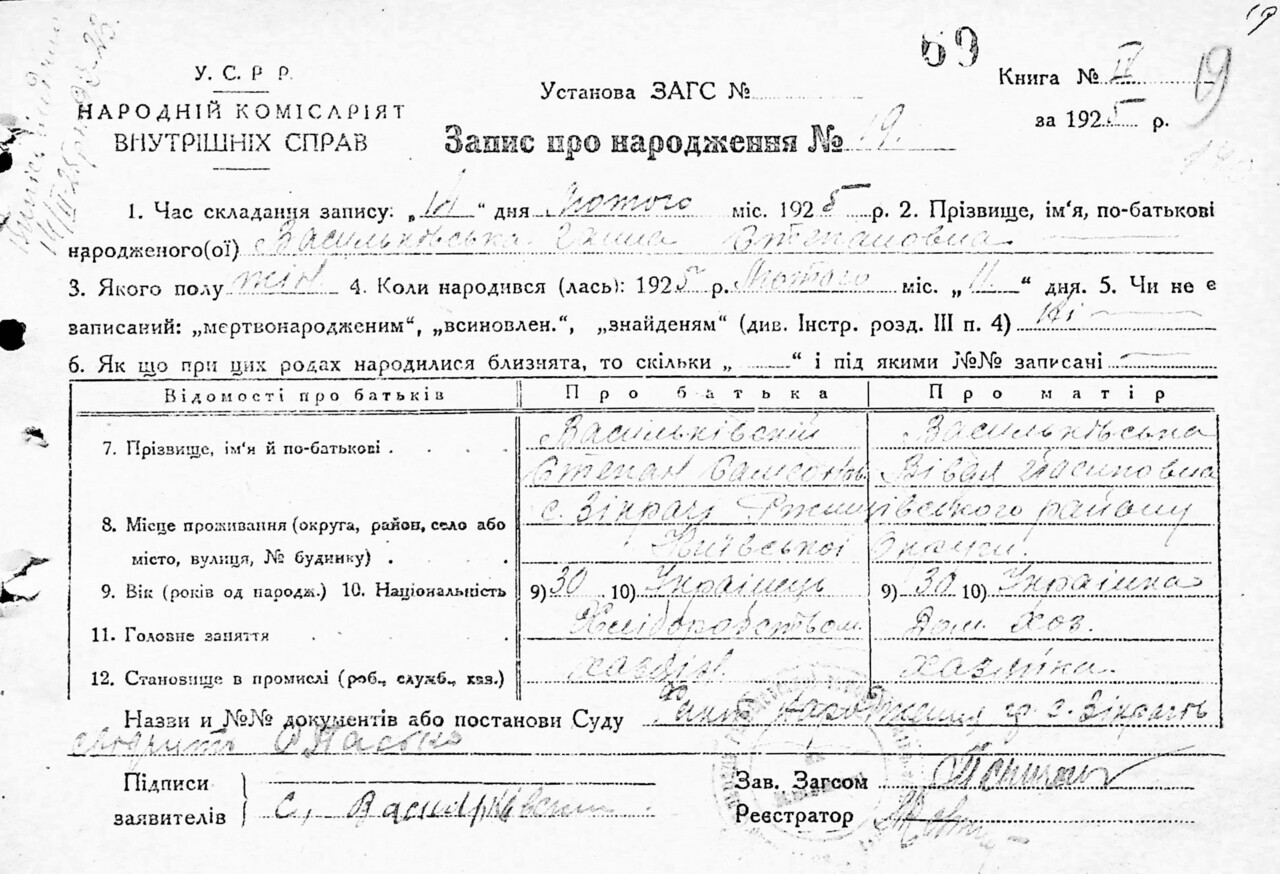 69
19
У. С. Р. Р.
НАРОДНІЙ КОМІСАРІЯТ
ВНУТРІШНІХ СПРАВ
Установа ЗАГС №
Книга № IV
за 1925 р.
Запис про народження № 19.
1. Час складання запису: „14“ дня Лютого міс. 1925 р. 2. Прізвище, ім'я, по-батькові
народженого(ої) Васильківська Ганна Степановна
3. Якого полу жін 4. Коли народився (лась): 1925 р. Лютого міс. „11“ дня. 5. Чи не є
записаний: „мертвонародженим“, „всиновлен.“, „знайденям“ (див. Інстр. розд. III п. 4) Ні
6. Як що при цих родах народилися близнята, то скільки „ “ і під якими №№ записані
Відомості про батьків Про батька Про матір
7. Прізвище, ім'я й по-батькові . . . . Васильківский Васильківська
Степан Самсонів
8. Місце проживання (округа, район, село або с. Зікрачі Ржищівського району
місто, вулиця, № будинку) . . Київської Округи.
9. Вік (років од народж.) 10. Національність 9) 30 10) Українець 9) 30 10) Українка
11. Головне заняття . . . . Хліборобством Дом. хоз.
12. Становище в промислі (роб., служб., хаз.) хазяїн. хазяйка.
Назви и №№ документів або постанови Суду Факт народження гр. с. Зікрачів
Підписи
заявителів
С. Васильківский
Зав. Загсом
Реєстратор